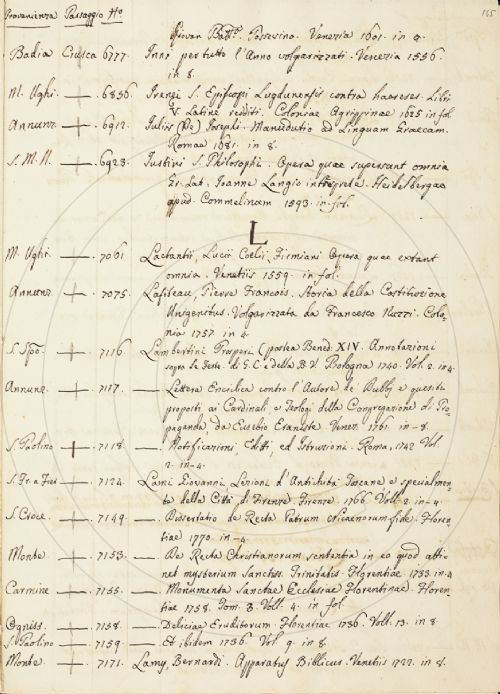 Provenienza Passaggio No. 165
Giovan Batta. Possevino. Venezia 1601. in 4.
Badia Crusca 6777. Inni per tutto l'Anno volgarizzati. Venezia 1556.
in 8.
M. Ughi. 6836 Irenei S. Episcopi Lugdunensis contra haereses. Libri
V. Latine redditi. Coloniae Agrippinae 1625 in fol.
Annunz. 6912. Iulii (De) Iosephi. Manuductio ad Linguam Graecam.
Romae 1681. in 8.
S. M. N. 6923. Iustini S. Philosophi. Opera quae supersunt omnia
Gr. Lat. Ioanne Langio interprete. Heidelbergae
apud. Commelinum 1593. in fol.
L
M. Ughi. 7061 Lactantii, Lucii Coelii, Firmiani Opera quae extant
omnia. Venetiis 1559. in fol.
Annunz. 7075. Lafiteau, Pierre Francois. Storia della Costituzione
Unigenitus. Volgarizzata da Francesco Nuzzi. Colo-
nia 1757. in 4.
S. Spo. 7116. Lambertini Prosperi (postea Bened. XIV. Annotazioni
sopra le Feste. di G. C. e della B. V. Bologna 1740. Vol. 2. in 4.
Annunz. 7117. —. Lettera Enciclica contro l'Autore de
proposti ai Cardinali, e Teologi della Congregazione di Pro-
paganda, da Eusebio Eraniste. Venez. 1761. in - 8.
S. Paolino 7118. —. Notificazioni, Editti, ed Istruzioni. Roma, 1742 Vol.
2. in - 4.
7124. Lami Giovanni, Lezioni d'Antichità Toscane e specialmen-
te della Città di Firenze. Firenze. 1766. Voll. 2. in - 4.
S. Croce. 7149. —. Dissertatio de Recta Patrum Nicaenorum fide. Floren-
tiae 1770. in - 4.
Monte 7153. —. De Recta Christianorum sententia in eo quod atti-
net mysterium Sanctiss. Trinitatis. Florentiae 1733. in - 4
Carmine 7155. —. Monumenta Sanctae Ecclesiae Florentinae. Floren-
tiae 1758. Tom. 3. Voll. 4. in fol.
Ogniss. 7158. —. Deliciae Eruditorum Florentiae 1736. Voll. 13. in 8.
S. Paolino 7159. —. Et ibidem 1736. Vol. 9. in 8
Monte 7171. Lamy, Bernardi. Apparatus Biblicus. Venetiis 1722. in 8.